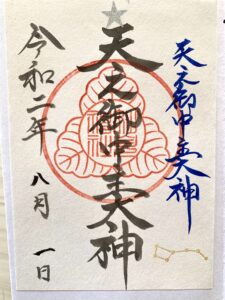 天之御中主大神
天之御中主大神
令和二年 八月 一日